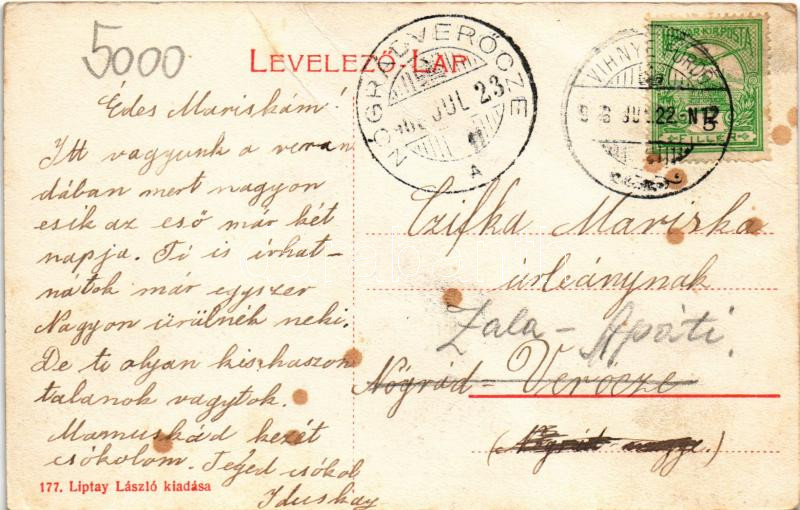 5000
LEVELEZŐ-LAP
Édes Mariskám!
Itt vagyunk a veran
dában mert nagyon
esik az eső már két
napja. Ti is írhat-
nátok már egyszer
Nagyon örülnék neki.
De ti olyan kis haszon
talanok vagytok.
Mamuskád kezét
csókolom. Téged csókol
Iduskay
177. Liptay László kiadása
NÓGRÁDVERŐCZE
JUL 23
A
VIHNYE
JUL 22
MAGYAR KIR. POSTA
5
FILLÉR
Czifka Mariska
úrleánynak
Zala-Apáti.
Nógrád-Verőcze
(Nógrád megye.)